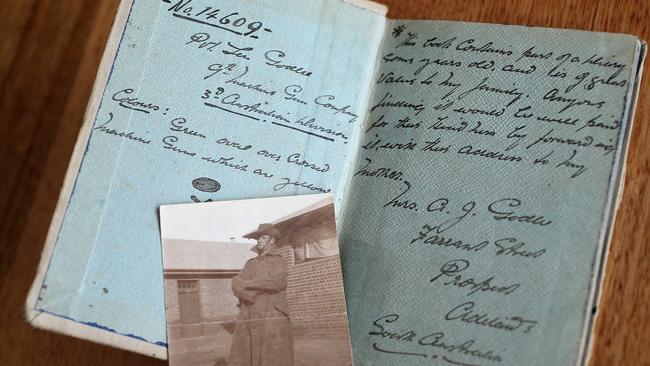 No. 14609
Pvt. Len Godlee
9th Machine Gun Company
3rd Australian Division.
Colours:
Green oval over crossed
Machine Guns which are yellow
* This book contains part of a diary
some years old, and is of great
value to my family. Anyone
finding it would be well paid
for their kindness by forwarding
it, with this address to my
Mother.
Mrs. A. J. Godlee
Farrant Street
Prospect
Adelaide
South Australia